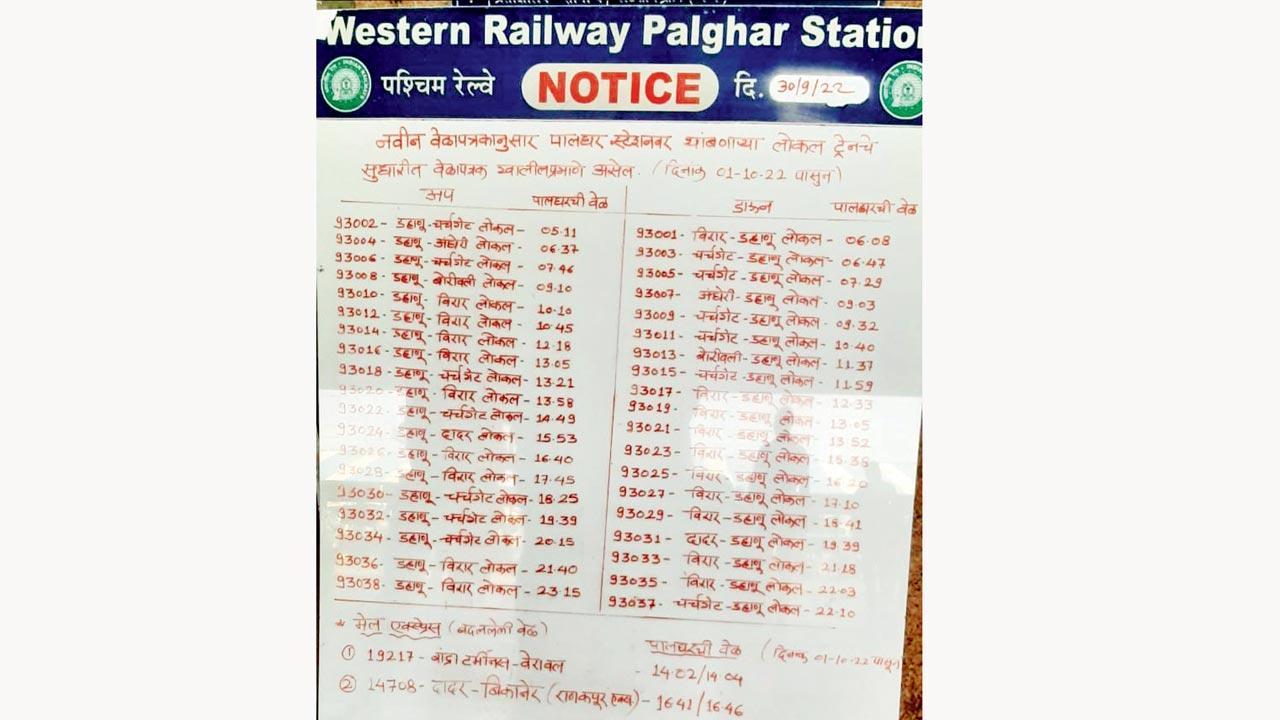 Western Railway Palghar Station
पश्चिम रेल्वे NOTICE दि. 30/9/22
नवीन वेळापत्रकानुसार पालघर स्टेशनवर थांबणाऱ्या लोकल ट्रेनचे
सुधारीत वेळापत्रक खालीलप्रमाणे असेल. (दिनांक 01-10-22 पासून)
अप पालघरची वेळ
93002 - डहाणू - चर्चगेट लोकल - 05.11
93004 - डहाणू - अंधेरी लोकल - 06.37
93006 - डहाणू - चर्चगेट लोकल - 07.46
93008 - डहाणू - बोरीवली लोकल - 09.10
93010 - डहाणू - विरार लोकल - 10.10
93012 - डहाणू - विरार लोकल - 10.45
93014 - डहाणू - विरार लोकल - 12.18
93016 - डहाणू - विरार लोकल - 13.05
93018 - डहाणू - चर्चगेट लोकल - 13.21
93020 - डहाणू - विरार लोकल - 13.58
93022 - डहाणू - चर्चगेट लोकल - 14.49
93024 - डहाणू - दादर लोकल - 15.53
93026 - डहाणू - विरार लोकल - 16.40
93028 - डहाणू - विरार लोकल - 17.45
93030 - डहाणू - चर्चगेट लोकल - 18.25
93032 - डहाणू - चर्चगेट लोकल - 19.39
93034 - डहाणू - चर्चगेट लोकल - 20.15
93036 - डहाणू - विरार लोकल - 21.40
93038 - डहाणू - विरार लोकल - 23.15
डाऊन पालघरची वेळ
93001 - विरार - डहाणू लोकल - 06.08
93003 - चर्चगेट - डहाणू लोकल - 06.47
93005 - चर्चगेट - डहाणू लोकल - 07.29
93007 - अंधेरी - डहाणू लोकल - 09.03
93009 - चर्चगेट - डहाणू लोकल - 09.32
93011 - चर्चगेट - डहाणू लोकल - 10.40
93013 - बोरीवली - डहाणू लोकल - 11.37
93015 - चर्चगेट - डहाणू लोकल - 11.59
93017 - विरार - डहाणू लोकल - 12.33
93019 - विरार - डहाणू लोकल - 13.05
93021 - विरार - डहाणू लोकल - 13.52
93023 - विरार - डहाणू लोकल - 15.38
93025 - विरार - डहाणू लोकल - 16.20
93027 - विरार - डहाणू लोकल - 17.10
93029 - विरार - डहाणू लोकल - 18.41
93031 - दादर - डहाणू लोकल - 19.39
93033 - विरार - डहाणू लोकल - 21.18
93035 - विरार - डहाणू लोकल - 22.03
93037 - चर्चगेट - डहाणू लोकल - 22.10
* मेल एक्स्प्रेस (बदललेली वेळ) पालघरची वेळ (दिनांक 01-10-22 पासून)
① 19217 - बांद्रा टर्मीनस - वेरावल - 14.02/14.04
② 14708 - दादर - बिकानेर (राणकपूर एक्स.) - 16.41/16.46